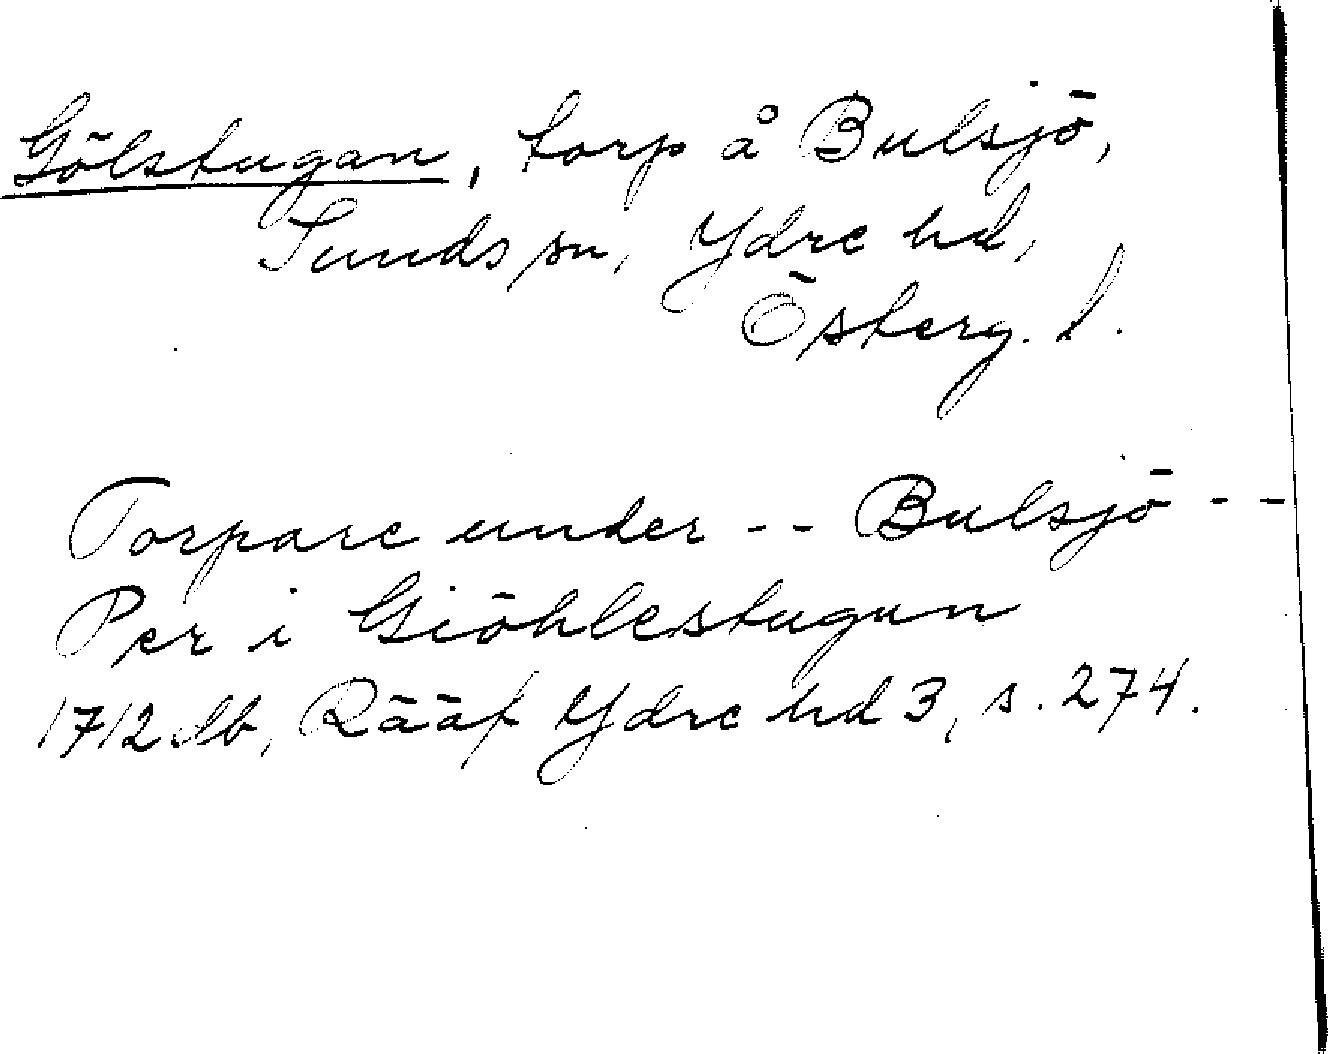 Gölstugan, torp å Bulsjö,
Sunds sn, Ydre hd,
Österg. l.
Torpare under -- Bulsjö --
Per i Giöhlestugun
1712 Jb, Rääf Ydre hd 3, s. 274.